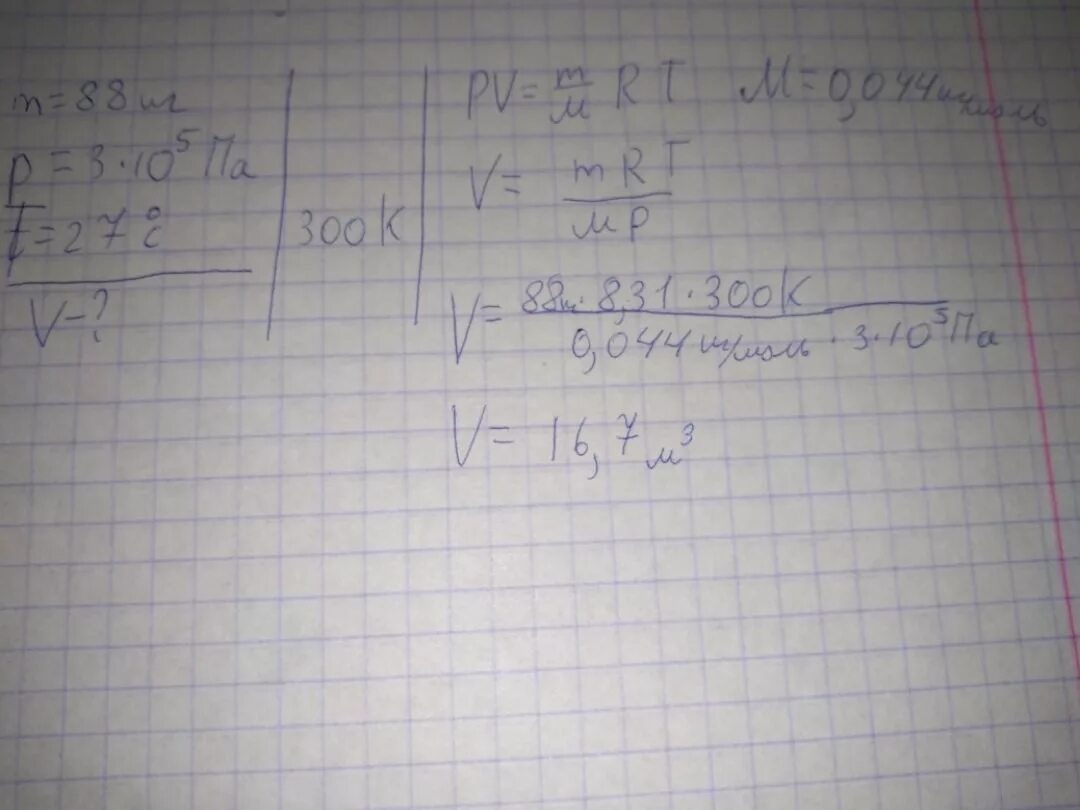 m = 88 кг
p = 3·10⁵ Па
t = 27 °C
300 К
V - ?
PV = m/M R T    M = 0,044 кг/моль
V = m R T / M P
V = 88кг · 8,31 · 300К / 0,044 кг/моль · 3·10⁵ Па
V = 16,7 м³